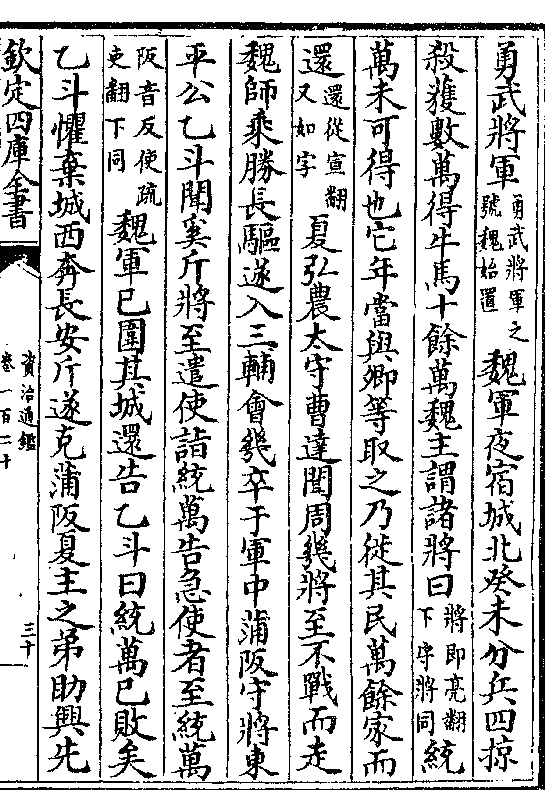 勇武將軍勇武將軍之號魏始置魏軍夜宿城北癸未分兵四掠
殺獲數萬得牛馬十餘萬魏主謂諸將曰將即亮翻下守將同統
萬未可得也它年當與卿等取之乃徙其民萬餘家而
還還從宣翻又如字夏弘農太守曹達聞周幾將至不戰而走
魏師乘勝長驅遂入三輔會幾卒于軍中蒲阪守將東
平公乙斗聞奚斤將至遣使詣統萬告急使者至統萬
阪音反使疏吏翻下同魏軍已圍其城還告乙斗曰統萬已敗矣
乙斗懼棄城西奔長安斤遂克蒲阪夏主之弟助興先
欽定四庫全書
資治通鑑
卷一百二十
三十